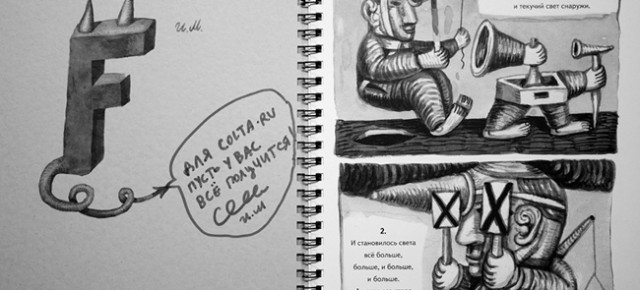 и.м.
F
ДЛЯ COLTA.RU
ПУСТЬ У ВАС
ВСЁ ПОЛУЧИТСЯ!
и.м
и текучий свет снаружи.
2.
И становилось света
всё больше,
больше, и больше,
и больше.